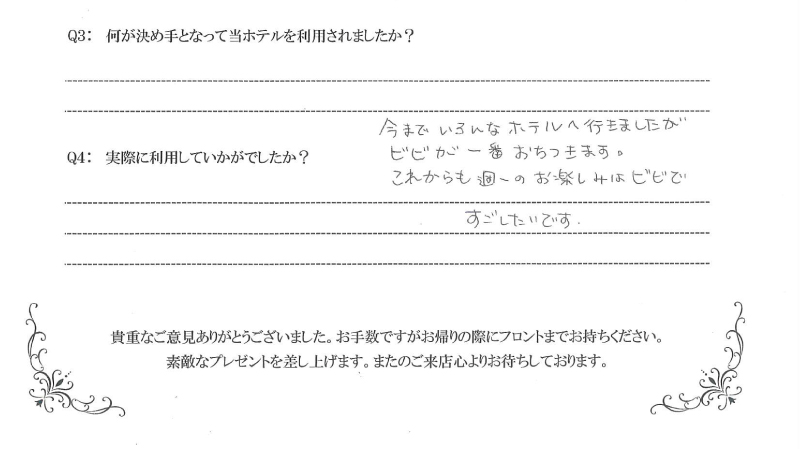 Q3： 何が決め手となって当ホテルを利用されましたか？
今まで いろんな ホテルへ行きましたが
Q4： 実際に利用していかがでしたか？
ビビが 一番 おちつきます。
これからも 週一の お楽しみは ビビで
すごしたいです.
貴重なご意見ありがとうございました。お手数ですがお帰りの際にフロントまでお持ちください。
素敵なプレゼントを差し上げます。またのご来店心よりお待ちしております。